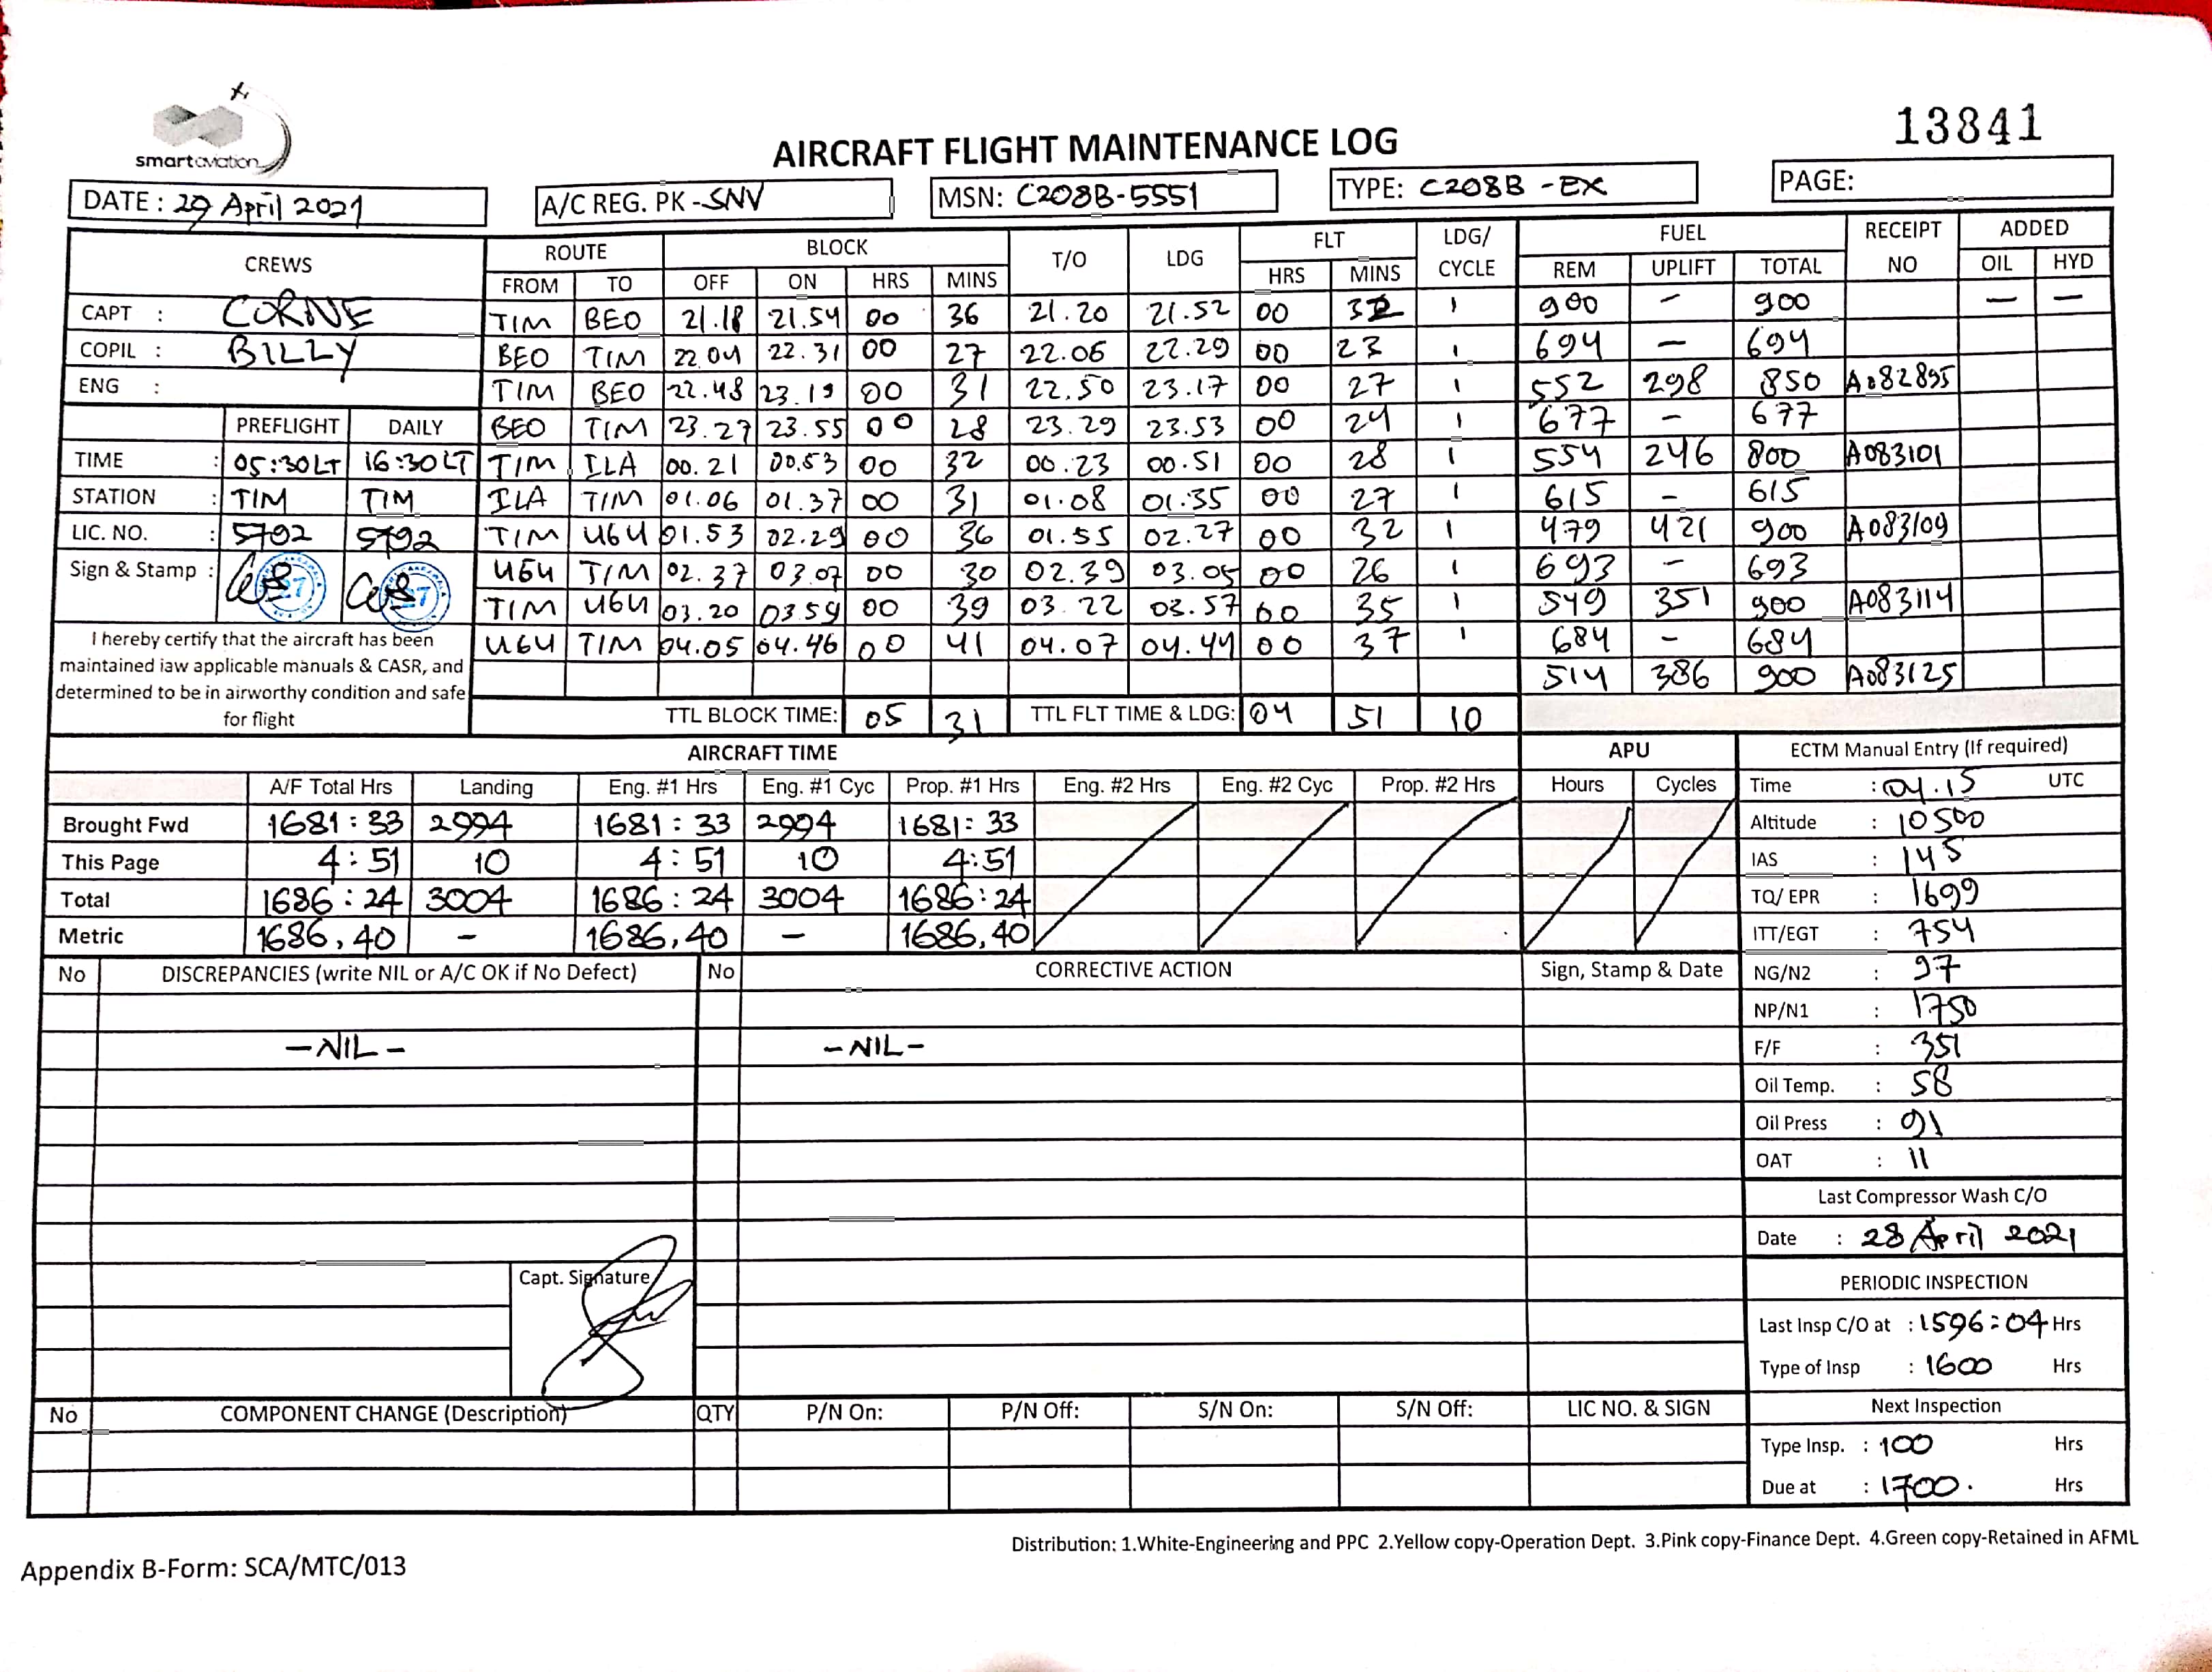 smart aviation
13841
AIRCRAFT FLIGHT MAINTENANCE LOG
DATE : 29 April 2021 A/C REG. PK - SNV MSN: C208B-5551 TYPE: C208B -EX PAGE:
CREWS ROUTE BLOCK T/O LDG FLT LDG/ CYCLE FUEL RECEIPT NO ADDED
FROM TO OFF ON HRS MINS HRS MINS REM UPLIFT TOTAL OIL HYD
CAPT : CORNE TIM BEO 21.18 21.54 00 36 21.20 21.52 00 32 1 900 - 900 - -
COPIL : BILLY BEO TIM 22 04 22.31 00 27 22.06 22.29 00 23 1 694 - 694
ENG : TIM BEO 22.48 23.19 00 31 22.50 23.17 00 27 1 552 298 850 A082895
PREFLIGHT DAILY BEO TIM 23.27 23.55 00 28 23.29 23.53 00 24 1 677 - 677
TIME : 05:30LT 16:30LT TIM ILA 00.21 00.53 00 32 00.23 00.51 00 28 1 554 246 800 A083101
STATION : TIM TIM ILA TIM 01.06 01.37 00 31 01.08 01.35 00 27 1 615 - 615
LIC. NO. : 5792 5792 TIM UGU 01.53 02.29 00 36 01.55 02.27 00 32 1 479 421 900 A083109
Sign & Stamp : UGU TIM 02.37 03.07 00 30 02.39 03.05 00 26 1 693 - 693
TIM UGU 03.20 03.59 00 39 03 22 03.57 00 35 1 549 351 900 A083114
UGU TIM 04.05 04.46 00 41 04.07 04.44 00 37 1 684 - 684
514 386 900 A083125
I hereby certify that the aircraft has been
maintained iaw applicable manuals & CASR, and
determined to be in airworthy condition and safe
for flight
TTL BLOCK TIME: 05 31 TTL FLT TIME & LDG: 04 51 10
AIRCRAFT TIME APU ECTM Manual Entry (If required)
A/F Total Hrs Landing Eng. #1 Hrs Eng. #1 Cyc Prop. #1 Hrs Eng. #2 Hrs Eng. #2 Cyc Prop. #2 Hrs Hours Cycles Time : 04.15 UTC
Brought Fwd 1681 : 33 2994 1681 : 33 2994 1681 : 33 Altitude : 10500
This Page 4 : 51 10 4 : 51 10 4:51 IAS : 145
Total 1686 : 24 3004 1686 : 24 3004 1686:24 TQ/ EPR : 1699
Metric 1686,40 - 1686,40 - 1686,40 ITT/EGT : 754
No DISCREPANCIES (write NIL or A/C OK if No Defect) No CORRECTIVE ACTION Sign, Stamp & Date NG/N2 : 97
NP/N1 : 1750
- NIL - - NIL - F/F : 351
Oil Temp. : 58
Oil Press : 91
OAT : 11
Last Compressor Wash C/O
Date : 28 April 2021
Capt. Signature
PERIODIC INSPECTION
Last Insp C/O at : 1596:04 Hrs
Type of Insp : 1600 Hrs
No COMPONENT CHANGE (Description) QTY P/N On: P/N Off: S/N On: S/N Off: LIC NO. & SIGN Next Inspection
Type Insp. : 100 Hrs
Due at : 1700. Hrs
Distribution: 1.White-Engineering and PPC 2.Yellow copy-Operation Dept. 3.Pink copy-Finance Dept. 4.Green copy-Retained in AFML
Appendix B-Form: SCA/MTC/013